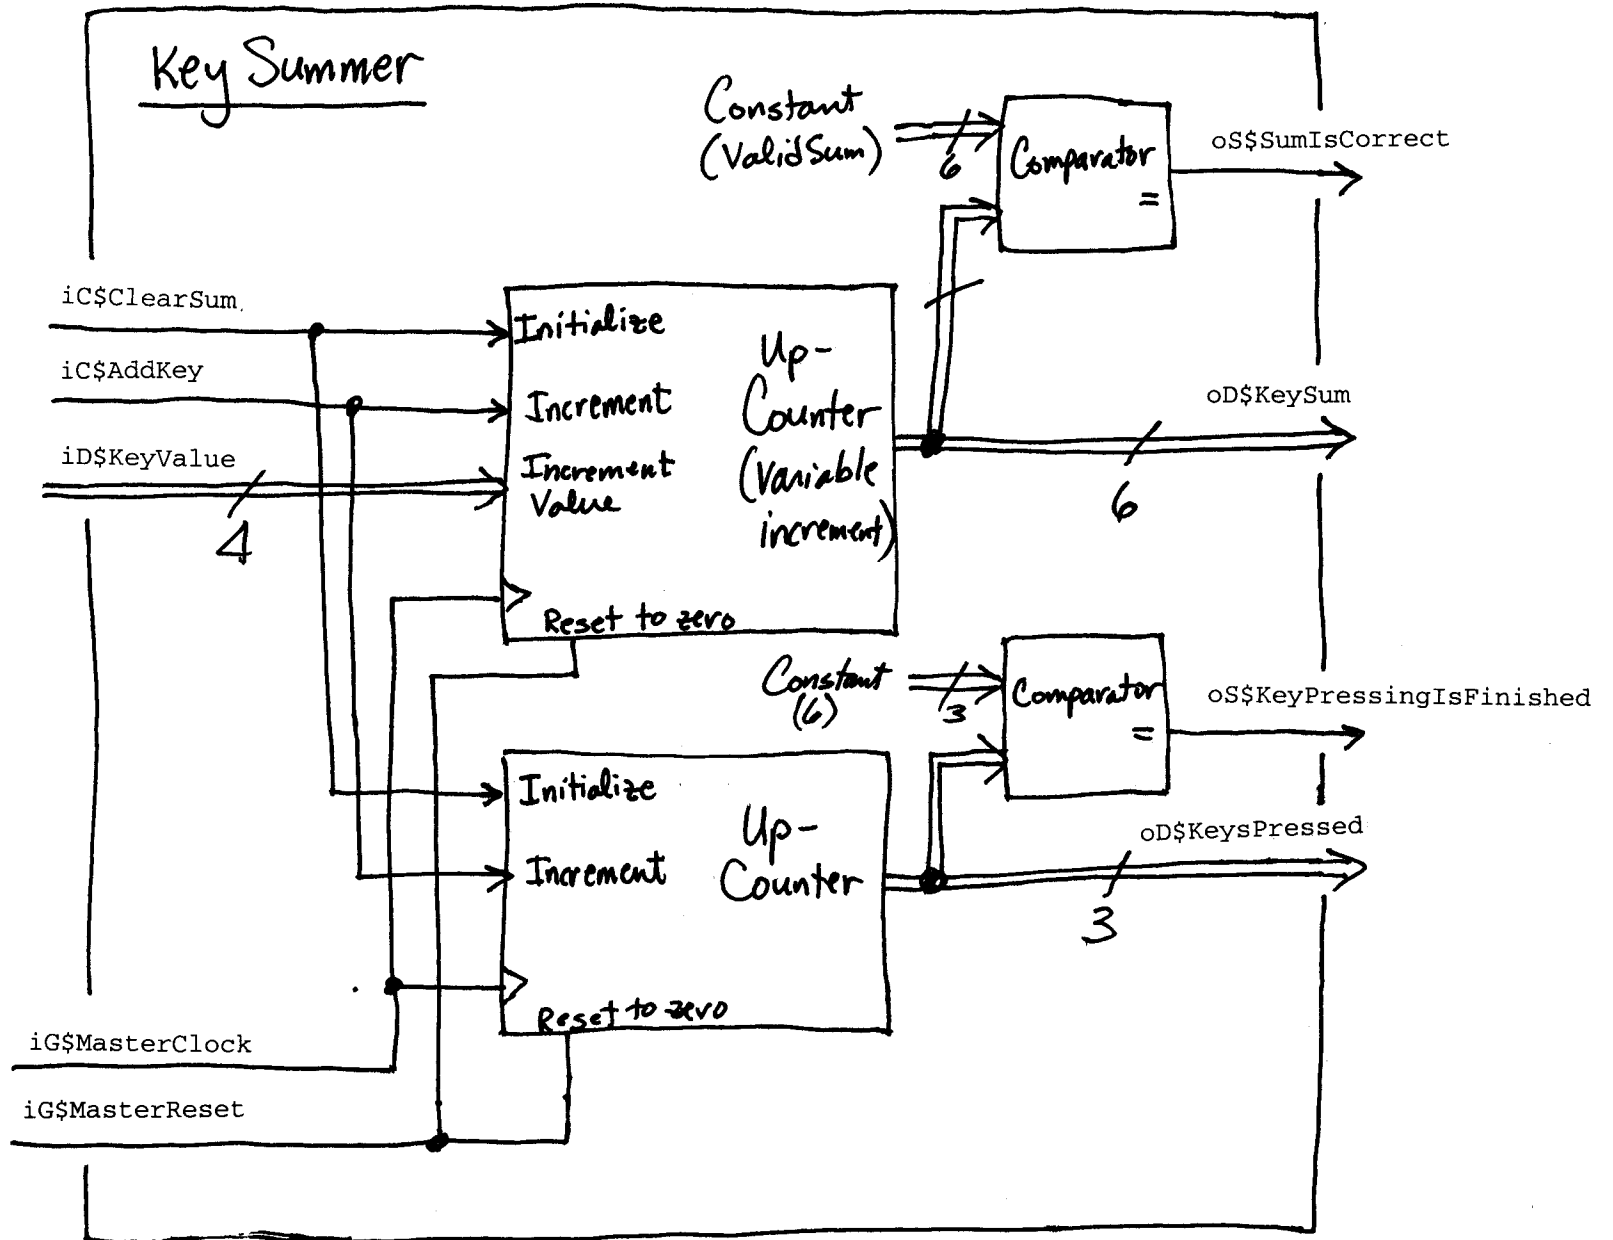 Key Summer
Constant
(ValidSum)
6
Comparator
=
oS$SumIsCorrect
iC$ClearSum
Initialize
iC$AddKey
Increment
iD$KeyValue
4
Increment
Value
Up-
Counter
(Variable
increment)
Reset to zero
oD$KeySum
6
Constant
(6)
3
Comparator
=
oS$KeyPressingIsFinished
Initialize
Increment
Up-
Counter
Reset to zero
oD$KeysPressed
3
iG$MasterClock
iG$MasterReset